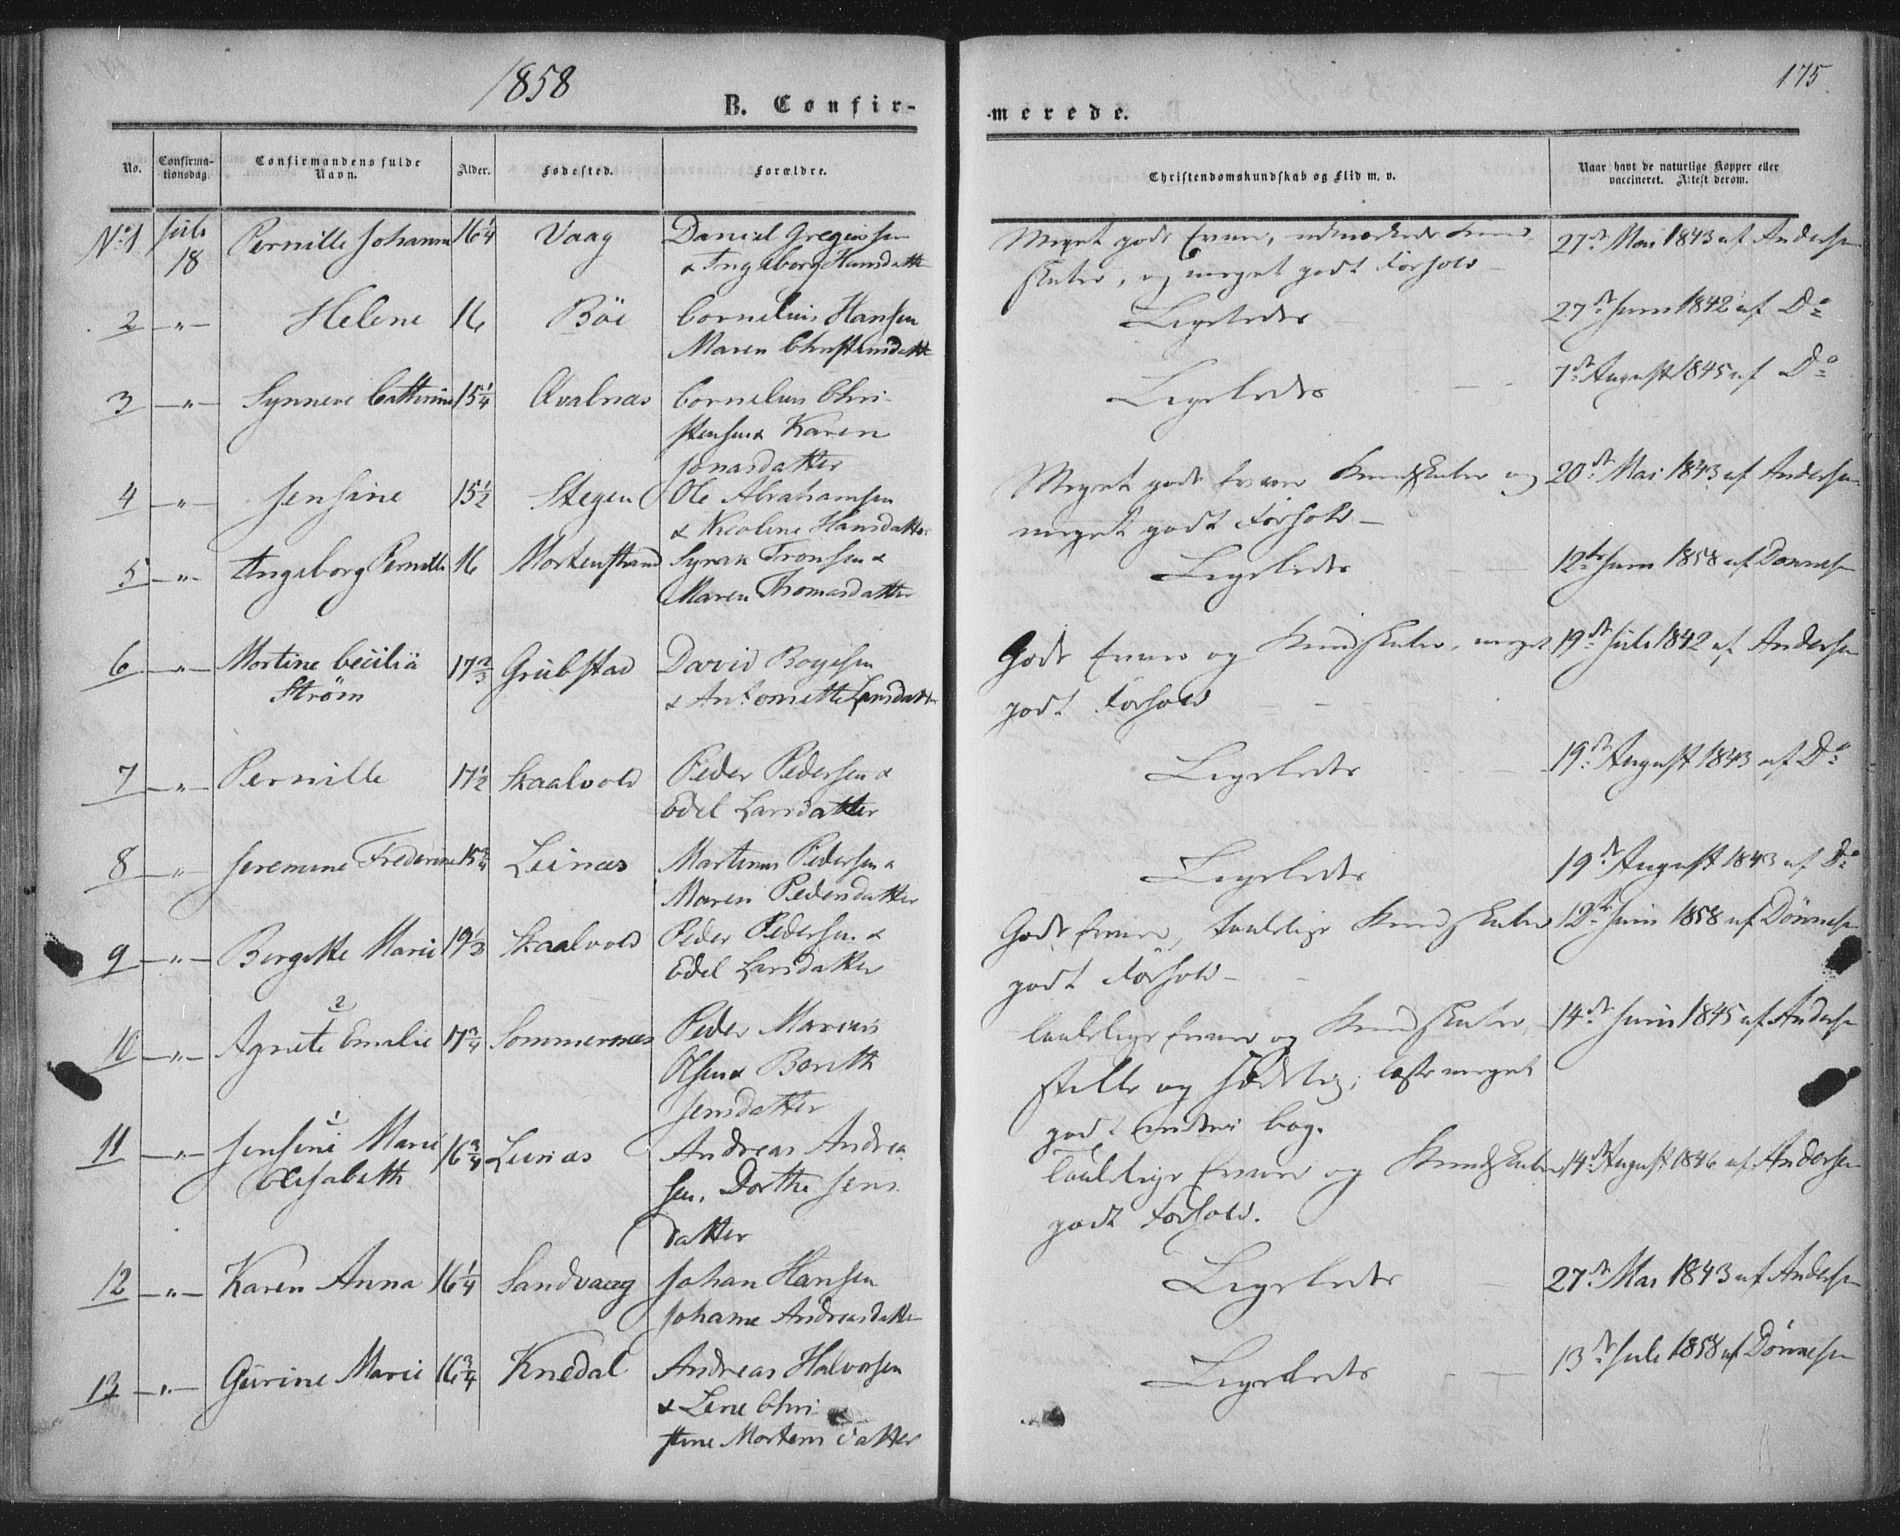 1858
175.
B. Confir-
-merede.
No.
Confirma-
tionsdag.
Confirmandens fulde
Navn.
Alder.
Fødested.
Forældre.
Christendomskundskab og Flid m. v.
Naar havt de naturlige Kopper eller
vaccineret. Attest derom.
No 1 Juli 18 Pernille Johanna 16 1/4 Vaag Daniel Gregersen
& Ingeborg Hansdatter
Meget gode Evner, udmærkede Kund
skaber, og meget godt Forhold
27de Mai 1843 af Andersen
2 -"- Helene 16 Böe Cornelius Hansen
Maren Christensdatter
Ligeledes
27de Juni 1842 af Do
3 -"- Synneve Cathrine 15 1/4 Qvalnæs Cornelius Chri
stensen & Karen
Jonasdatter
Ligeledes
7de August 1845 af Do
4 -"- Jensine 15 1/2 Stegen Ole Abrahamsen
& Nicoline Hansdatter
Meget gode Evner Kundskaber og
meget godt Forhold
20de Mai 1843 af Andersen
5 -"- Ingeborg Pernille 16 Mortenstrand Tronsen &
Maren Thomasdatter
Ligeledes
12te Juni 1858 af Dönnesen
6 -"- Mortine Cecilia
Strøm
17 2/3 Grübstad David Boyesen
& Antonette Larsdatter
Gode Evner og Kundskaber, meget
godt Forhold
19de Juli 1842 af Andersen
7 -"- Pernille 17 1/2 Skaalvold Peder Pedersen &
Edel Larsdatter
Ligeledes
19de August 1843 af Do
8 -"- Jeremine Frederine 15 3/4 Leinæs Martinus Pedersen &
Maren Pedersdatter
Ligeledes
19de August 1843 af Do
9 -"- Bergitte Marie 19 1/3 Skaalvold Peder Pedersen &
Edel Larsdatter
Gode Evner, taalelige Kundskaber
godt Forhold
12te Juni 1858 af Dönnesen
2
10 -"- Agnete Emalie 17 3/4 Sommernæs Peder Marcus
Olsen & Berith
Jensdatter
taalelige Evner og Kundskaber
stille og sædelig, læste meget
godt inden bog.
14de Juni 1845 af Andersen
1
11 -"- Jensine Marie
Elisabeth
16 3/4 Leinæs Andreas Andrea
sen, Dorthe Jens
datter
taalelige Evner og Kundskaber
godt Forhold.
14de August 1846 af Andersen
12 -"- Karen Anna 16 1/4 Sandvaag Johan Hansen
Johanne Andreasdatter
Ligeledes
27de Mai 1843 af Andersen
13 -"- Gurine Marie 16 3/4 Knedal Andreas Halvorsen
& Lene Chri
stine Mortensdatter
Ligeledes
13de Juli 1858 af Dönnesen